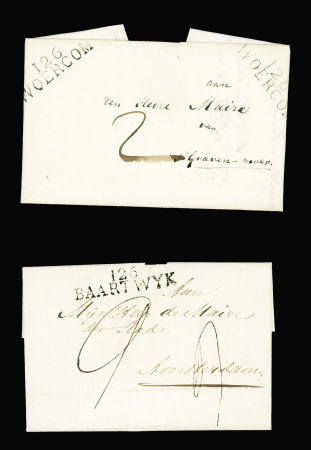 126
WOERCOM
126
WOERCOM
aan
den Heere Maire
van
's Graven-moer.
2
126
BAARTWYK
Aan
Mijn Heer de Maire
der Stad
Amsterdam